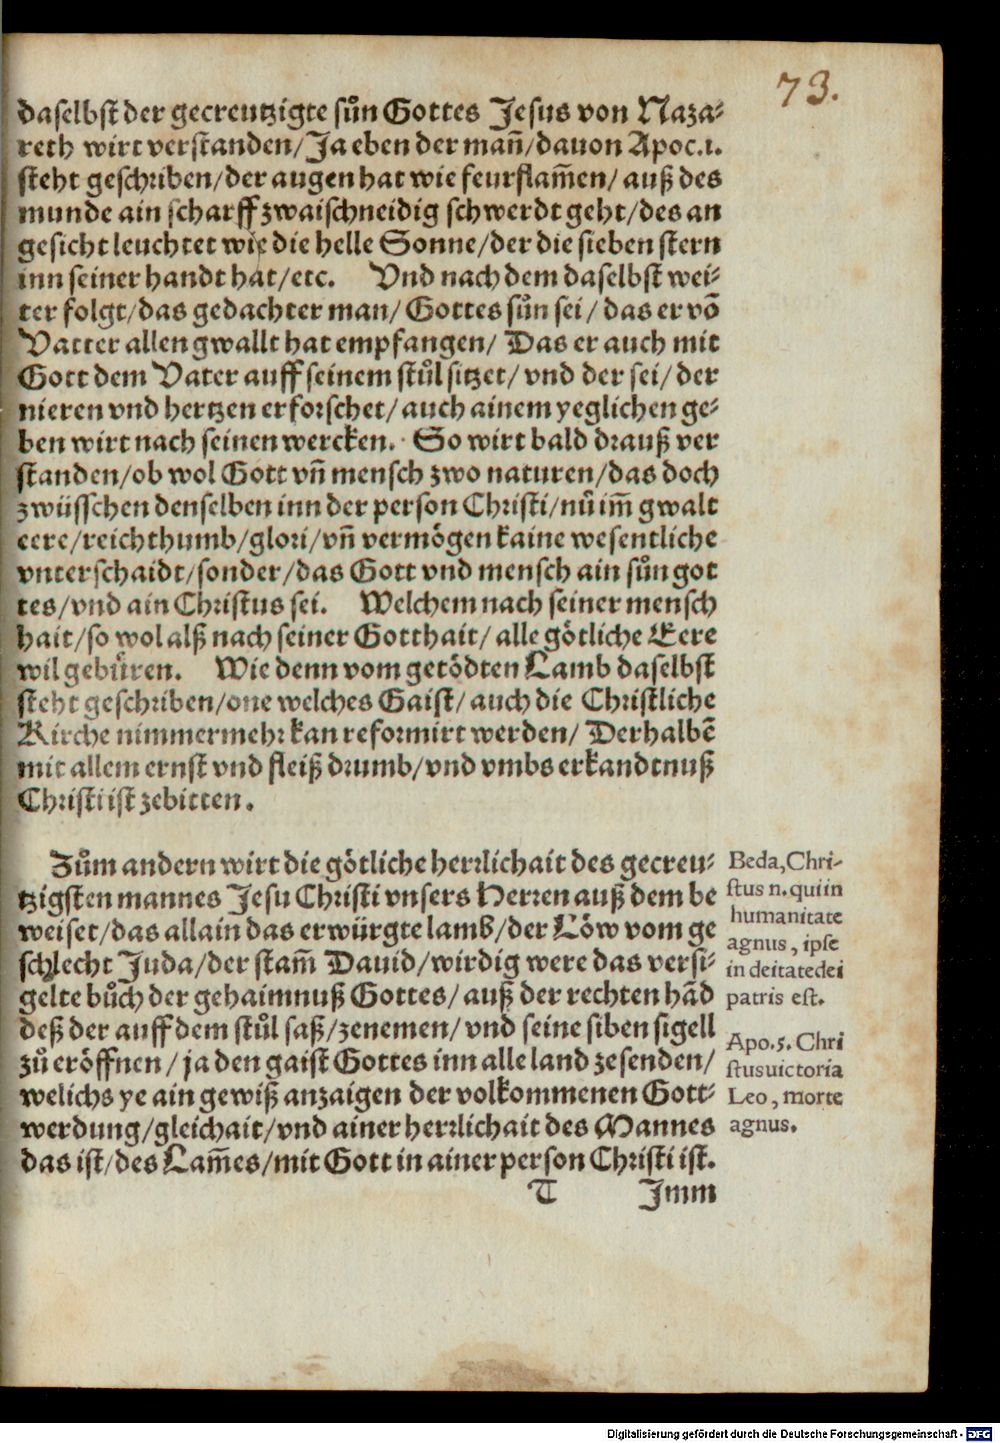 73.
daselbst der gecreutzigte sůn Gottes Jesus von Naza⸗
reth wirt verstanden/Ja eben der man̄/dauon Apoc.1.
steht geschriben/der augen hat wie feurflam̄en/auß des
munde ain scharff zwaischneidig schwerdt geht/des an
gesicht leuchtet wie die helle Sonne/der die sieben stern
inn seiner handt hat/etc. Vnd nach dem daselbst wei⸗
ter folgt/das gedachter man/Gottes sůn sei/das er võ
Vatter allen gwallt hat empfangen/Das er auch mit
Gott dem Vater auff seinem stůl sitzet/vnd der sei/der
nieren vnd hertzen erforschet/auch ainem yeglichen ge⸗
ben wirt nach seinen wercken. So wirt bald drauß ver
standen/ob wol Gott vn̄ mensch zwo naturen/das doch
zwüsschen denselben inn der person Christi/nů im̄ gwalt
eere/reichthumb/glori/vn̄ vermögen kaine wesentliche
vnterschaidt/sonder/das Gott vnd mensch ain sůn got
tes/vnd ain Christus sei. Welchem nach seiner mensch
hait/so wol alß nach seiner Gotthait/alle götliche Eere
wil gebüren. Wie denn vom getödten Lamb daselbst
steht geschriben/one welches Gaist/auch die Christliche
Kirche nimmermehr kan reformirt werden/Derhalbē
mit allem ernst vnd fleiß drumb/vnd vmbs erkandtnuß
Christi ist zebitten.
Zům andern wirt die götliche herrlichait des gecreu⸗
tzigsten mannes Jesu Christi vnsers Herren auß dem be
weiset/das allain das erwürgte lamb/der Löw vom ge
schlecht Juda/der stam̄ Dauid/wirdig were das versi⸗
gelte bůch der gehaimnuß Gottes/auß der rechten hãd
deß der auff dem stůl saß/zenemen/vnd seine siben sigell
zů eröffnen/ja den gaist Gottes inn alle land zesenden/
welichs ye ain gewiß anzaigen der volkommenen Gott⸗
werdung/gleichait/vnd ainer herrlichait des Mannes
das ist/des Lam̄es/mit Gott in ainer person Christi ist.
T Jmm
Beda, Chri-
stus n. qui in
humanitate
agnus, ipse
in deitate dei
patris est.
Apo.5. Chri
stus victoria
Leo, morte
agnus.
Digitalisierung gefördert durch die Deutsche Forschungsgemeinschaft - DFG